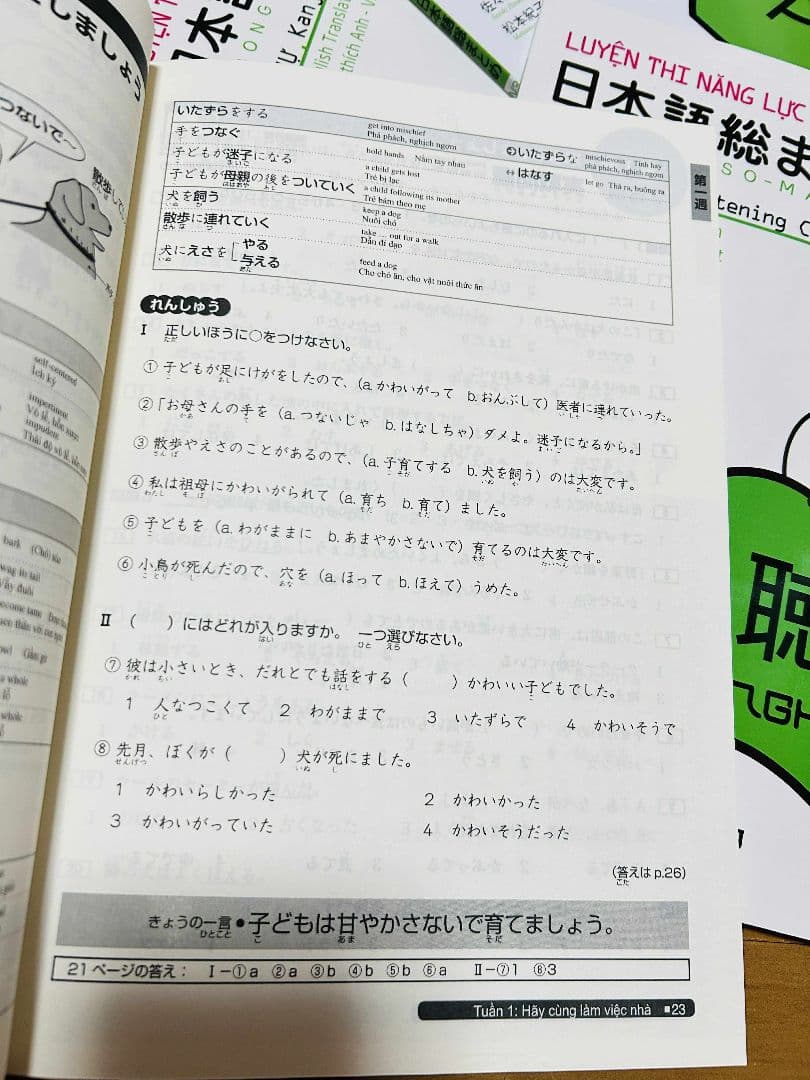 しましょう
つないで〜
散歩して
LUYỆN THI NĂNG LỰC
日本語総ま
聴
いたずらをする get into mischief Phá phách, nghịch ngợm いたずらな mischievous Tính hay phá phách, nghịch ngợm
手をつなぐ hold hands Nắm tay nhau ↔ はなす let go Thả ra, buông ra
子どもが迷子になる a child gets lost Trẻ bị lạc
子どもが母親の後をついていく a child following its mother Trẻ bám theo mẹ
犬を飼う keep a dog Nuôi chó
散歩に連れていく take ... out for a walk Dẫn đi dạo
犬にえさを[やる 与える feed a dog Cho chó ăn, cho vật nuôi thức ăn
第
週
れんしゅう
Ⅰ 正しいほうに○をつけなさい。
① 子どもが足にけがをしたので、(a. かわいがって b. おんぶして) 医者に連れていった。
② 「お母さんの手を (a. つないじゃ b. はなしちゃ) ダメよ。迷子になるから。」
③ 散歩やえさのことがあるので、(a. 子育てする b. 犬を飼う) のは大変です。
④ 私は祖母にかわいがられて (a. 育ち b. 育て) ました。
⑤ 子どもを (a. わがままに b. あまやかさないで) 育てるのは大変です。
⑥ 小鳥が死んだので、穴を (a. ほって b. ほえて) うめた。
Ⅱ ( )にはどれが入りますか。 一つ選びなさい。
⑦ 彼は小さいとき、だれとでも話をする ( ) かわいい子どもでした。
1 人なつこくて 2 わがままで 3 いたずらで 4 かわいそうで
⑧ 先月、ぼくが ( ) 犬が死にました。
1 かわいらしかった 2 かわいかった
3 かわいがっていた 4 かわいそうだった
(答えは p.26)
きょうの一言●子どもは甘やかさないで育てましょう。
21 ページの答え： Ⅰ－①a ②a ③b ④b ⑤b ⑥a Ⅱ－⑦1 ⑧3
Tuần 1: Hãy cùng làm việc nhà ■23
self-centered
Ích kỷ
impertinent
impudent